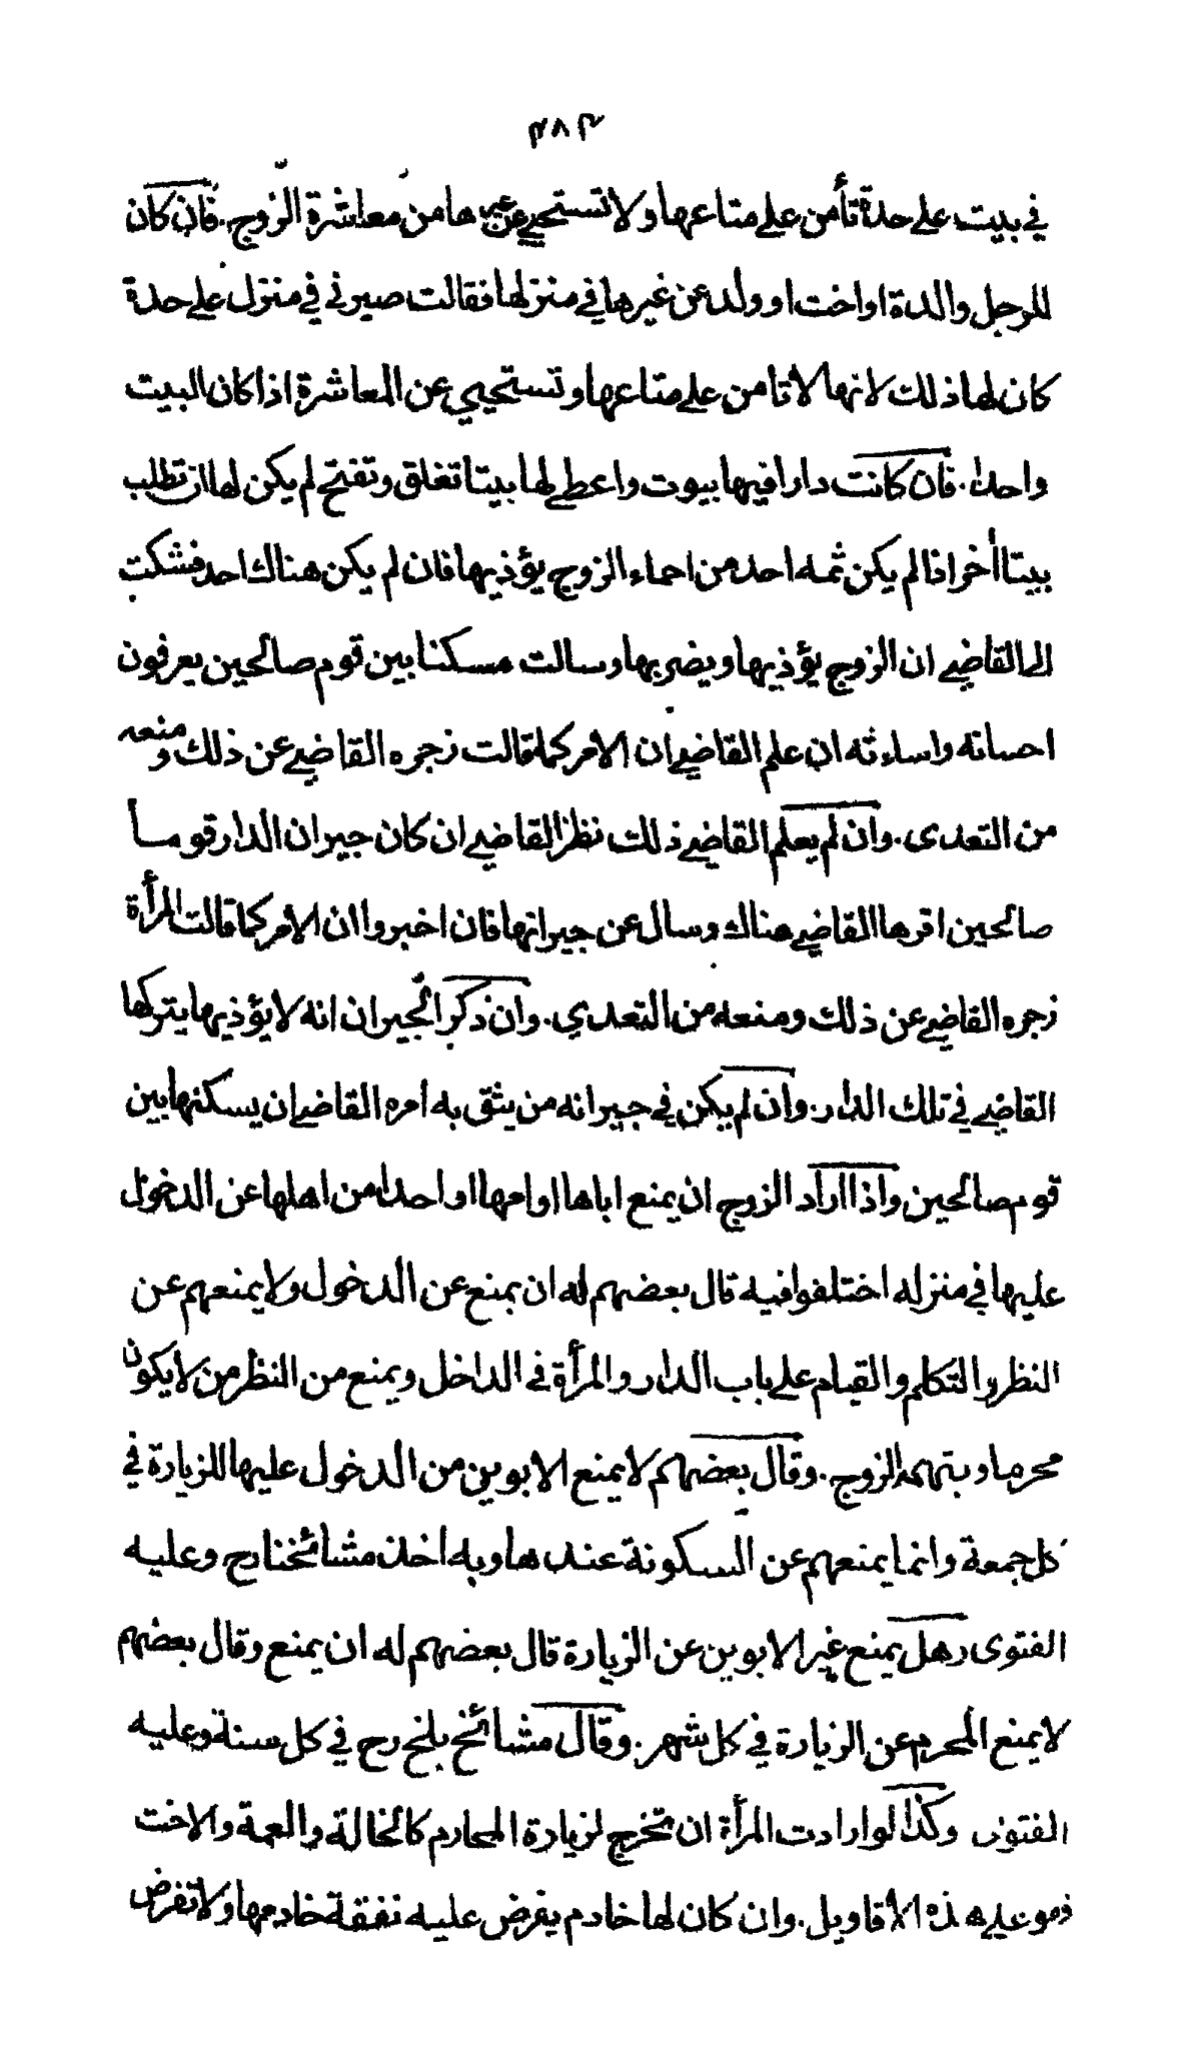 ٣٨٣
في بيت على حدة تأمن على متاعها ولا تستحيي عن غيرها من معاشرة الزوج. فان كان
للرجل والدة او اخت او ولد عن غيرها في منزلها فقالت صيرني في منزل على حدة
كان لها ذلك لانها لا تامن على متاعها وتستحيي عن المعاشرة اذا كان البيت
واحدا. فان كانت دارا فيها بيوت واعطى لها بيتا تغلق وتفتح لم يكن لها ان تطلب
بيتا أخر اذا لم يكن ثمه احد من احماء الزوج يؤذيها فان لم يكن هناك احد فشكت
الى القاضي ان الزوج يؤذيها ويضربها وسالت مسكنا بين قوم صالحين يعرفون
احسانه واساءته ان علم القاضي ان الامر كما قالت زجره القاضي عن ذلك ومنعه
من التعدى. وان لم يعلم القاضي ذلك نظر القاضي ان كان جيران الدار قوما
صالحين اقرها القاضي هناك وسال عن جيرانها فان اخبروا ان الأمر كما قالت المرأة
زجره القاضي عن ذلك ومنعه من التعدي. وان ذكر الجيران انه لا يؤذيها يتركها
القاضي في تلك الدار. وان لم يكن في جيرانه من يثق به امره القاضي ان يسكنها بين
قوم صالحين واذا اراد الزوج ان يمنع اباها او امها او احدا من اهلها عن الدخول
عليها في منزله اختلفوا فيه قال بعضهم له ان يمنع عن الدخول ولا يمنعهم عن
النظر والتكلم والقيام على باب الدار والمرأة في الداخل ويمنع من النظر من لا يكون
محرما ويتهمه الزوج. وقال بعضهم لا يمنع الابوين من الدخول عليها للزيارة في
كل جمعة وانما يمنعهم عن السكونة عندها وبه اخذ مشائخنا رح وعليه
الفتوى وهل يمنع غير الابوين عن الزيارة قال بعضهم له ان يمنع وقال بعضهم
لا يمنع المحرم عن الزيارة في كل شهر. وقال مشائخ بلخ رح في كل سنة وعليه
الفتوى وكذا لو ارادت المرأة ان تخرج لزيارة المحارم كالخالة والعمة والاخت
فهو على هذه الاقاويل. وان كان لها خادم يفرض عليه نفقة خادمها ولا تفرض